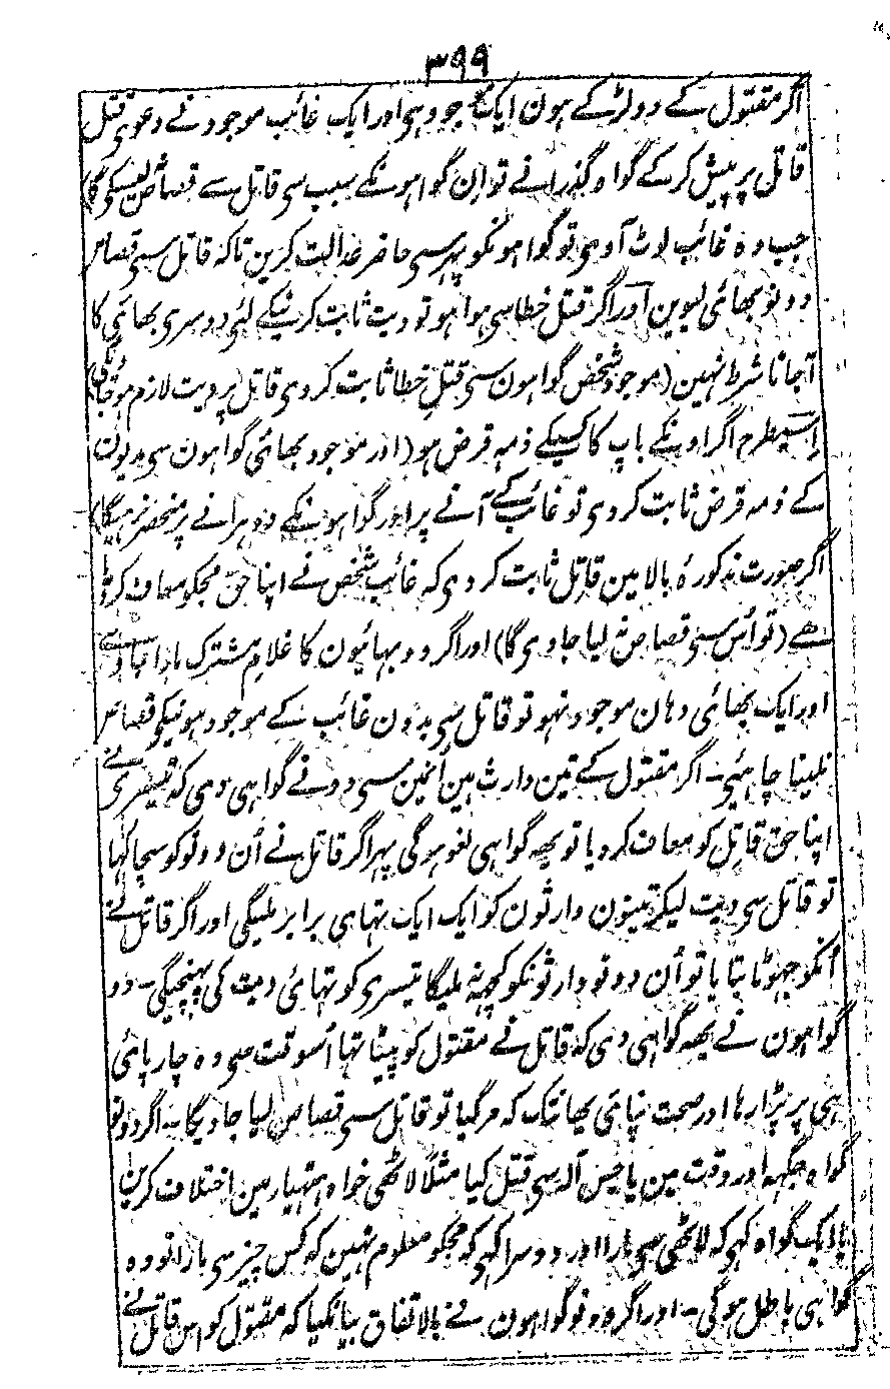 ۳۹۹
اگر مقتول کے دو لڑکے ہون ایک موجود ہی اور ایک غائب موجود نے دعوی قتل
قاتل پر پیش کر کے گواہ گذرانے تو ان گواہونکے سبب سی قاتل سے قصاص نہ لیسکی گا)
جب وہ غائب لوٹ آوی تو گواہونکو پہر سی حاضر عدالت کرین تاکہ قاتل سی قصاص
دونو بھائی لیوین اور اگر قتل خطا سی ہوا ہو تو دیت ثابت کرنیکے لئی دوسری بھائی کا
آجانا شرط نہین (موجود شخص گواہون سی قتل خطا ثابت کر دی قاتل پر دیت لازم ہوجائی)
اسیطرح اگر اونکے باپ کا کسیکے ذمہ قرض ہو (اور موجود بھائی گواہون سی مدیون
کے ذمہ قرض ثابت کر دی تو غائب کے آنے پر اور گواہونکے دوہرانے پر منحصر نرہیگا)
اگر صورت مذکورہ بالا مین قاتل ثابت کر دی کہ غائب شخص نے اپنا حق مجکو معاف کردیا
ہے (تو اس سی قصاص نہ لیا جاوی گا) اور اگر دو بہائیون کا غلام مشترک مارا جاوے
اور ایک بھائی وہان موجود نہو تو قاتل سی بدون غائب کے موجود ہونیکی قصاص
نلینا چاہئی۔ اگر مقتول کے تین وارث ہین انمین سی دو نے گواہی دی کہ تیسری نے
اپنا حق قاتل کو معاف کر دیا تو یہہ گواہی لغو ہوگی پہر اگر قاتل نے اُن دونو کو سچا کہا
تو قاتل سی دیت لیکر تینون وارثون کو ایک ایک تہاہی برابر ملیگی اور اگر قاتل نے
انکو جہوٹا بتایا تو اُن دونو وارثونکو کچہہ نہ ملیگا تیسری کو تہائی دیت کی پہنچیگی۔ دو
گواہون نے یہہ گواہی دی کہ قاتل نے مقتول کو پیٹا تہا اُسوقت سی وہ چارپائی
ہی پر پڑا رہا اور صحت نپائی یہانتک کہ مرگیا تو قاتل سی قصاص لیا جاویگا۔ اگر دونو
گواہ جگہہ اور وقت مین یا جس آلہ سی قتل کیا مثلاً لاٹھی خواہ ہتہیار مین اختلاف کرین
یا ایک گواہ کہی کہ لاٹھی سی مارا اور دوسرا کہی کہ مجکو معلوم نہین کہ کس چیز سی مارا تو وہ
گواہی باطل ہوگی۔ اور اگر دونو گواہون نے بالاتفاق بیانکیا کہ مقتول کو اس قاتل نے